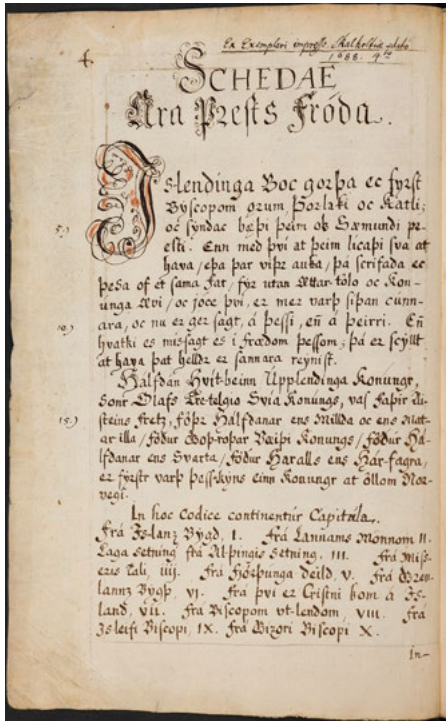 4.
Ex Exemplari impresso Skalholtiæ edito
1688. 4to
SCHEDAE
Ara Prests Fróda.
Islendinga Boc gorþa ec fyrst
Byscopom orum, Þorlaki oc Katli;
oc syndac bæþi þeim oc Sæmundi pre-
sti. Enn med þvi at þeim licaþi sva at
hava, eþa þar viþr auka, þá scrifada ec
þessa of et sama far, fyr utan Ættar-tölo oc Kon-
unga Ævi, oc joce þvi, er mer varþ siþan cunn-
ara, oc nu er ger sagt, á þessi, eñ á þeirri. Eñ
hvatki es missagt es i frædom þessom; þá er scyllt
at hava þat helldr er sannara reynist.
5.)
10.)
Halfdan Hvit-beinn Upplendinga Konungr,
sonr Olafs Tretelgio Svia Konungs, vas faþir Ai-
steins Fretz, föþr Halfdanar ens Millda oc ens Mat-
ar illa, födur Goþ-roþar Væiþi Konungs, födur Ha-
lfdanar ens Svarta, födur Haralls ens Har-fagra,
er fyrstr varþ þess-kyns einn Konungr at öllom Nor-
vegi.
15.)
In hoc Codice continentur Capitula.
Frá Islanz Bygd, I. Frá Lannams Monnom II.
Laga setning frá Al-þingis setning. III. Frá Miss-
eris tali, iiij. Frá Fjórþunga deild, V. Frá Gren-
lannz Bygþ, VI. Frá þvi er Cristni kom á Is-
land, VII. Frá Biscopom ut-lendom, VIII. Frá
Isleifi Biscopi, IX. Frá Gizori Biscopi X.
In-